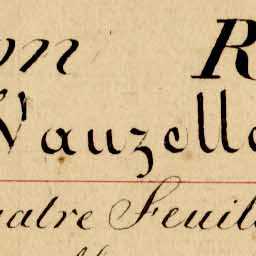 on R
Vauzelle
uatre Feuil